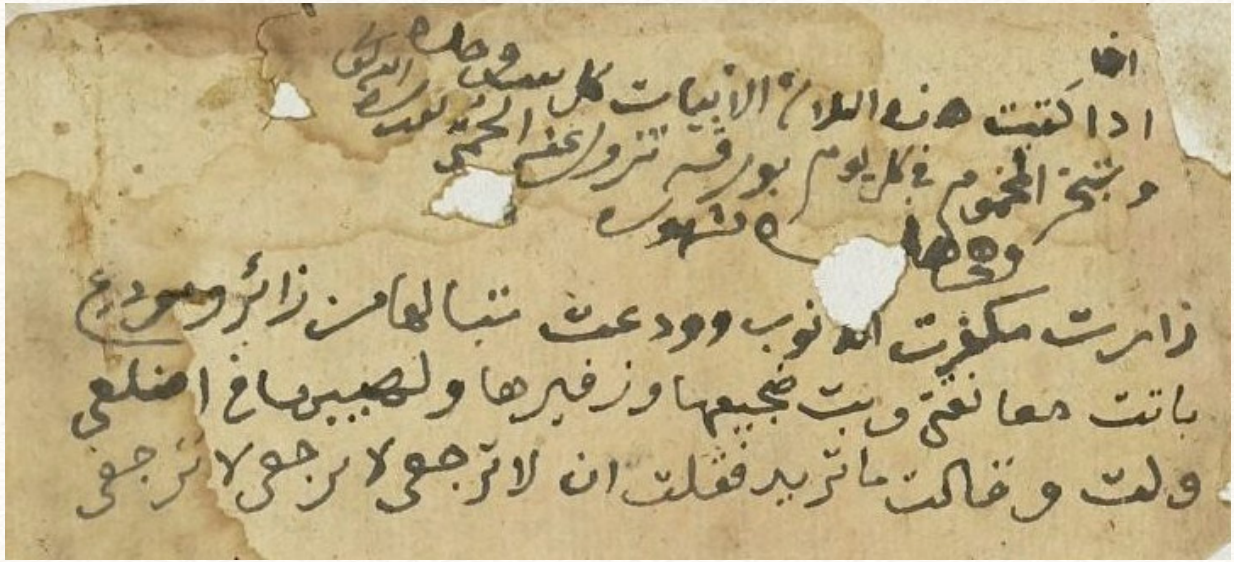 اذا
اذا كتبت هذه الثلاثة الابيات كل بيت وحده
وبتبخر المحموم في كل يوم بورقه تزول عنه الحمى
وهي هذه مشهوره
زارت مكفرت الذنوب وودعت تبا لها من زائر ومودع
باتت معانقتي وبت ضجيعها وزفيرها ولهيبها في اضلعي
ولت وقالت ما تريد فقلت ان لا ترجعي لا ترجعي لا ترجعي